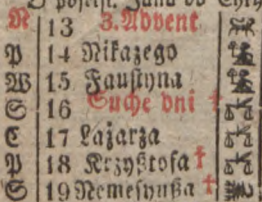 N 13 3. Advent
P 14 Nikazego
W 15 Faustyna
S 16 Suche dni †
C 17 Łazarza
P 18 Krzysstofa †
S 19 Nemesyußa †